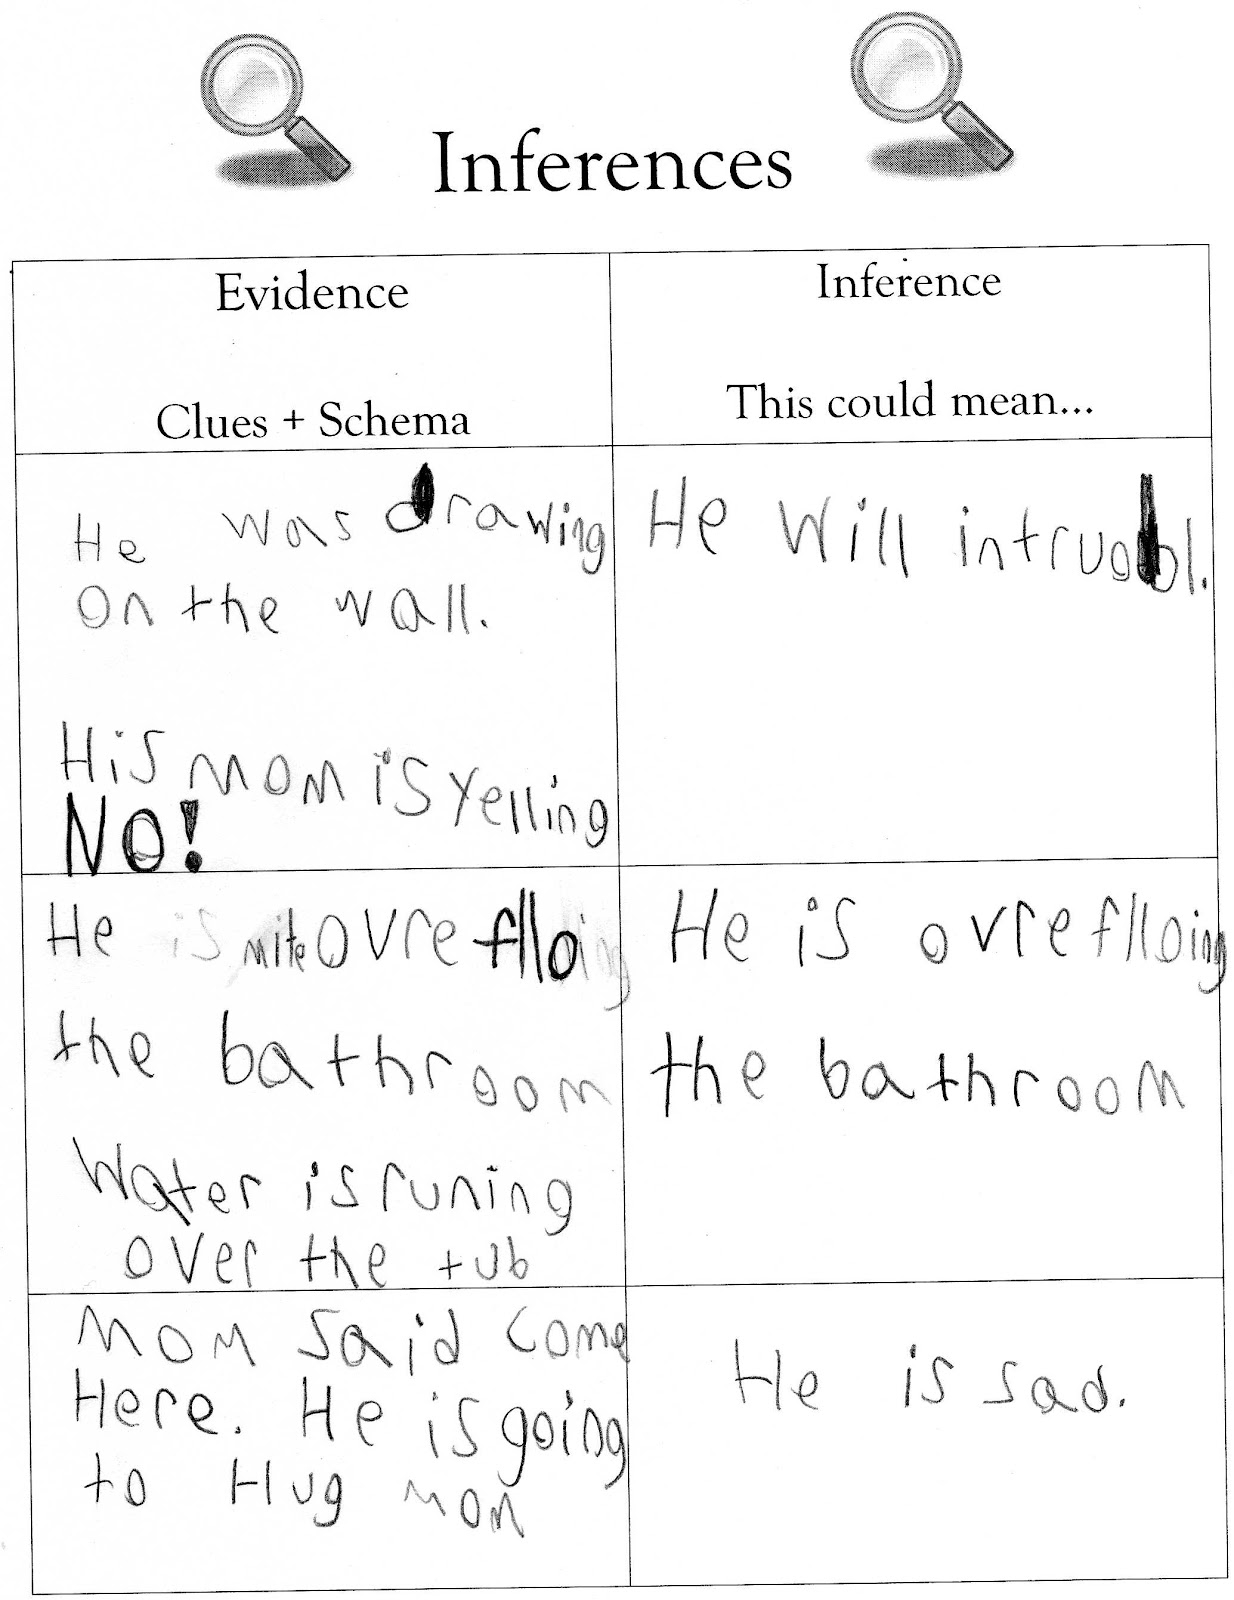 Inferences
Evidence
Clues + Schema
Inference
This could mean...
He was drawing
on the wall.
His mom is yelling
NO!
He will intrubl.
He is mite ovre flloing
the bathroom
Water is runing
over the tub
He is ovre flloing
the bathroom
Mom said come
Here. He is going
to Hug mom
He is sad.